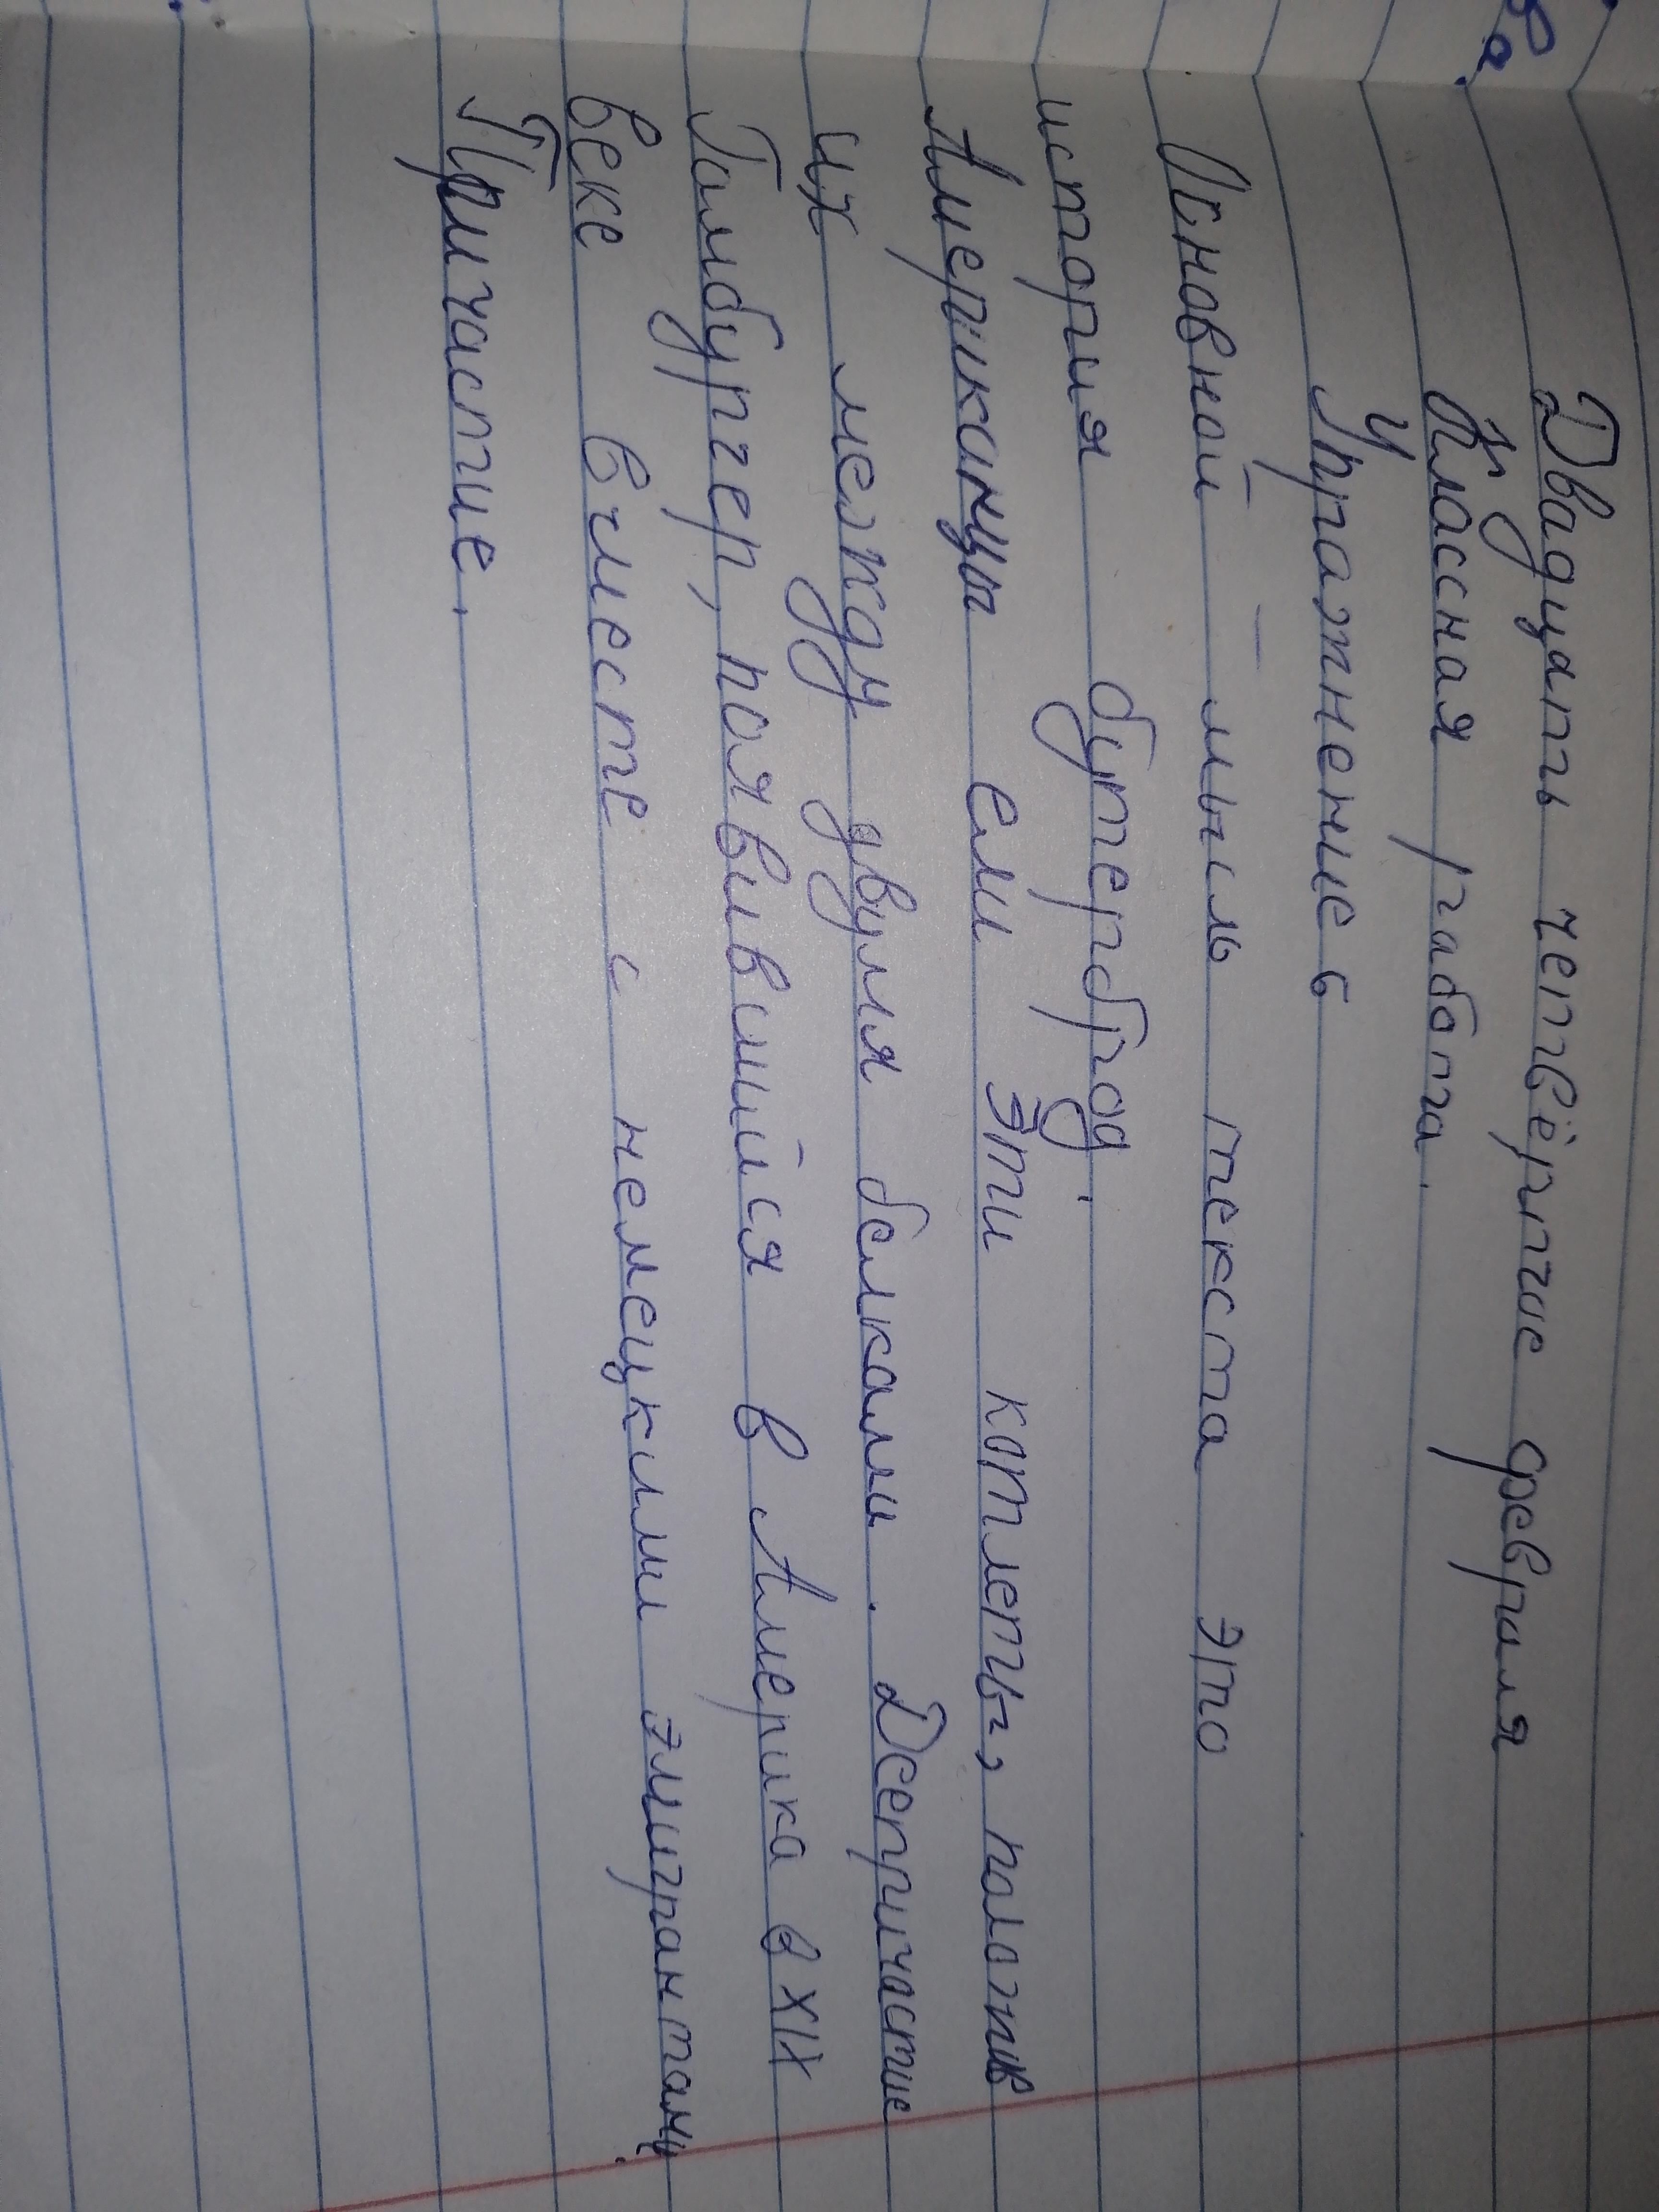 Двадцать четвёртие февраля
Класная работа.
Упражнение 6
Основной мысль текста это
история бутерброд.
Американцы ели эти котлеты, положив
их между двумя белками. Деепричастие
Гамбургер, появившийся в Америка в XIX
веке вместе с немецкими эмигрантами.
Причастие.